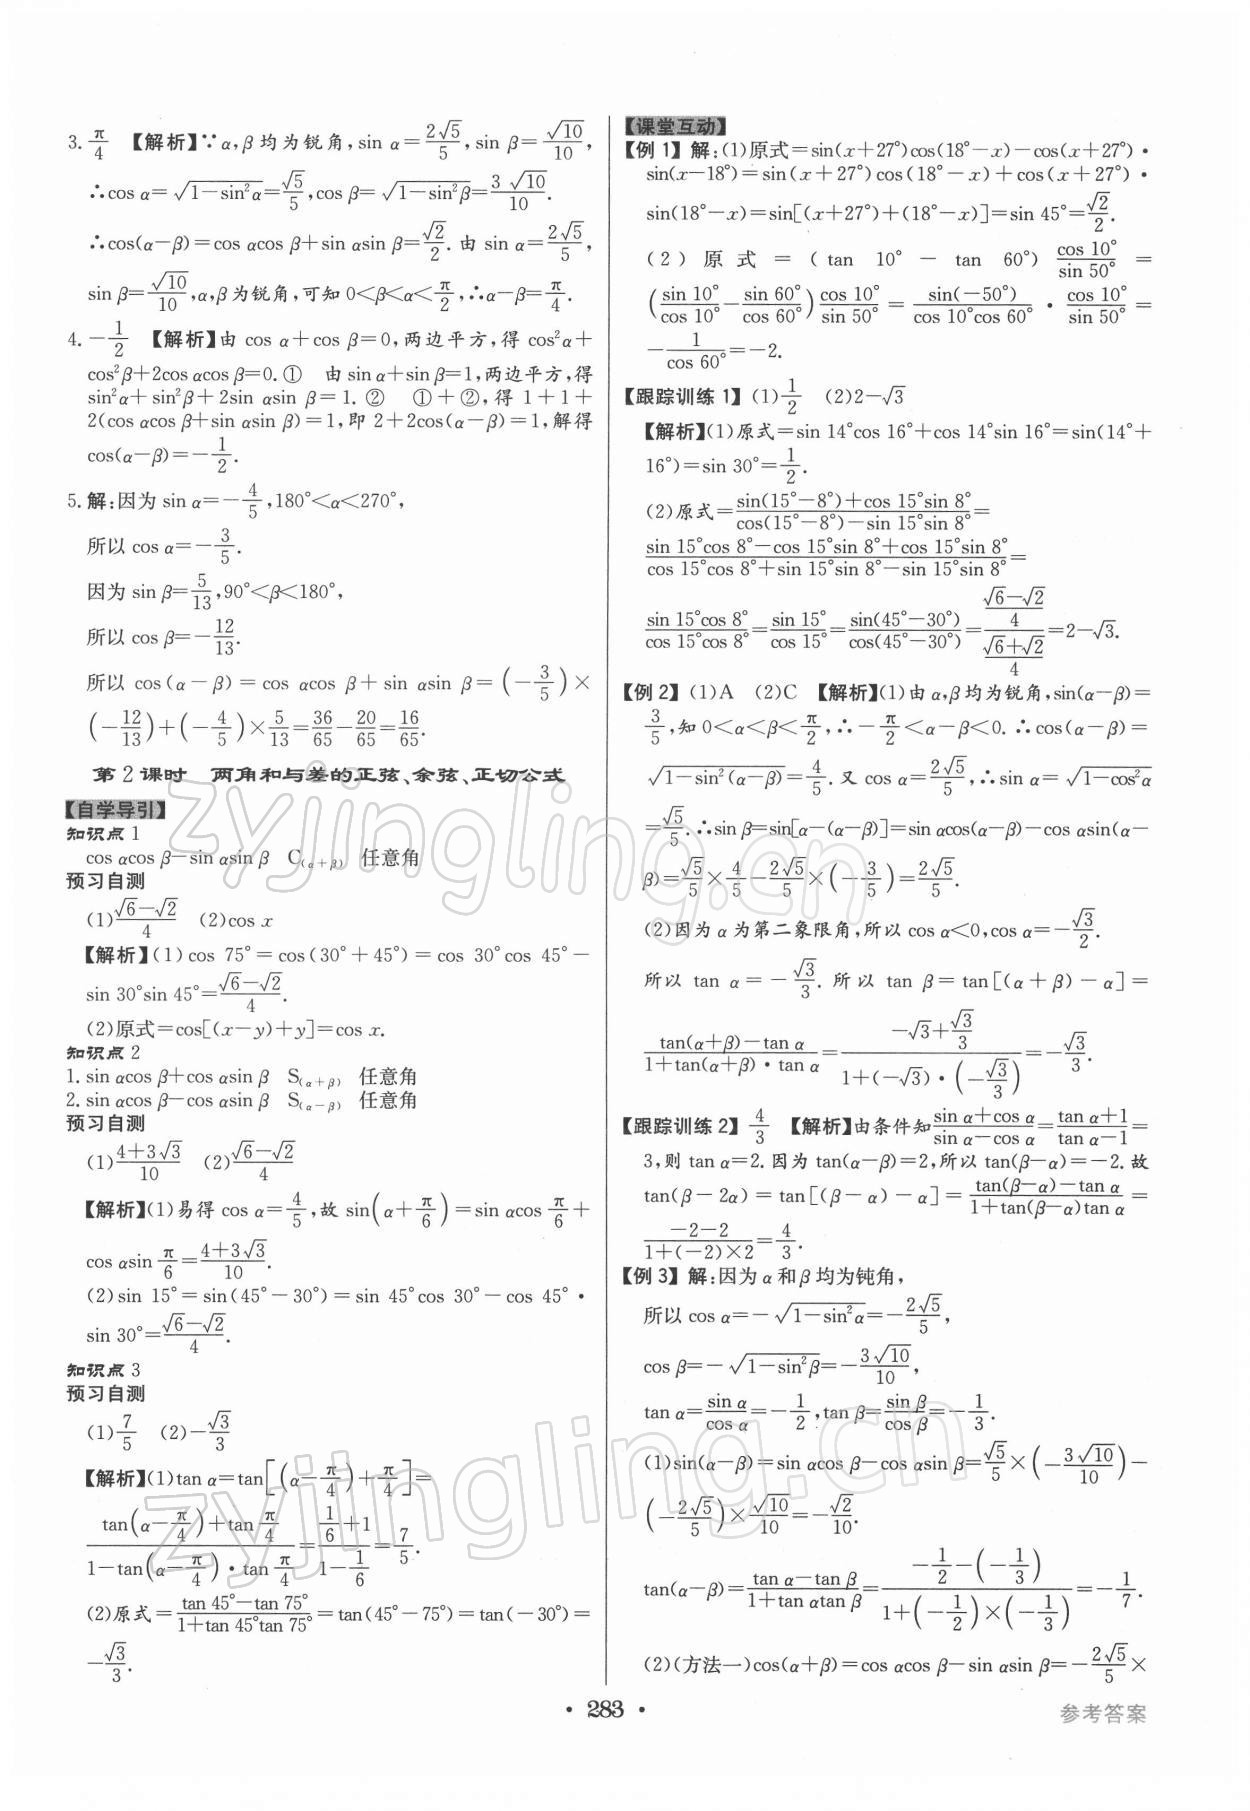 3. π/4 【解析】∵α,β均为锐角,sin α=2√5/5,sin β=√10/10,
∴cos α=√(1−sin²α)=√5/5,cos β=√(1−sin²β)=3√10/10.
∴cos(α−β)=cos αcos β+sin αsin β=√2/2.由 sin α=2√5/5,
sin β=√10/10,α,β为锐角,可知 0<β<α<π/2,∴α−β=π/4.
4. −1/2 【解析】由 cos α+cos β=0,两边平方,得 cos²α+
cos²β+2cos αcos β=0.① 由 sin α+sin β=1,两边平方,得
sin²α+sin²β+2sin αsin β=1.② ①+②,得 1+1+
2(cos αcos β+sin αsin β)=1,即 2+2cos(α−β)=1,解得
cos(α−β)=−1/2.
5. 解:因为 sin α=−4/5,180°<α<270°,
所以 cos α=−3/5.
因为 sin β=5/13,90°<β<180°,
所以 cos β=−12/13.
所以 cos(α−β)=cos αcos β+sin αsin β=(−3/5)×
(−12/13)+(−4/5)×5/13=36/65−20/65=16/65.
第 2 课时 两角和与差的正弦、余弦、正切公式
【自学导引】
知识点 1
cos αcos β−sin αsin β C(α+β) 任意角
预习自测
(1)(√6−√2)/4 (2)cos x
【解析】(1)cos 75°=cos(30°+45°)=cos 30°cos 45°−
sin 30°sin 45°=(√6−√2)/4.
(2)原式=cos[(x−y)+y]=cos x.
知识点 2
1. sin αcos β+cos αsin β S(α+β) 任意角
2. sin αcos β−cos αsin β S(α−β) 任意角
预习自测
(1)(4+3√3)/10 (2)(√6−√2)/4
【解析】(1)易得 cos α=4/5,故 sin(α+π/6)=sin αcos π/6+
cos αsin π/6=(4+3√3)/10.
(2)sin 15°=sin(45°−30°)=sin 45°cos 30°−cos 45°·
sin 30°=(√6−√2)/4.
知识点 3
预习自测
(1)7/5 (2)−√3/3
【解析】(1)tan α=tan[(α−π/4)+π/4]=
(tan(α−π/4)+tan π/4)/(1−tan(α−π/4)·tan π/4)=(1/6+1)/(1−1/6)=7/5.
(2)原式=(tan 45°−tan 75°)/(1+tan 45°tan 75°)=tan(45°−75°)=tan(−30°)=
−√3/3.
【课堂互动】
【例 1】解:(1)原式=sin(x+27°)cos(18°−x)−cos(x+27°)·
sin(x−18°)=sin(x+27°)cos(18°−x)+cos(x+27°)·
sin(18°−x)=sin[(x+27°)+(18°−x)]=sin 45°=√2/2.
(2)原式=(tan 10°−tan 60°)cos 10°/sin 50°=
(sin 10°/cos 10°−sin 60°/cos 60°)cos 10°/sin 50°=sin(−50°)/(cos 10°cos 60°)·cos 10°/sin 50°=
−1/cos 60°=−2.
【跟踪训练 1】(1)1/2 (2)2−√3
【解析】(1)原式=sin 14°cos 16°+cos 14°sin 16°=sin(14°+
16°)=sin 30°=1/2.
(2)原式=(sin(15°−8°)+cos 15°sin 8°)/(cos(15°−8°)−sin 15°sin 8°)=
(sin 15°cos 8°−cos 15°sin 8°+cos 15°sin 8°)/(cos 15°cos 8°+sin 15°sin 8°−sin 15°sin 8°)=
(sin 15°cos 8°)/(cos 15°cos 8°)=sin 15°/cos 15°=sin(45°−30°)/cos(45°−30°)=((√6−√2)/4)/((√6+√2)/4)=2−√3.
【例 2】(1)A (2)C 【解析】(1)由 α,β均为锐角,sin(α−β)=
3/5,知 0<α<β<π/2,∴−π/2<α−β<0.∴cos(α−β)=
√(1−sin²(α−β))=4/5.又 cos α=2√5/5,∴sin α=√(1−cos²α)
=√5/5.∴sin β=sin[α−(α−β)]=sin αcos(α−β)−cos αsin(α−
β)=√5/5×4/5−2√5/5×(−3/5)=2√5/5.
(2)因为 α 为第二象限角,所以 cos α<0,cos α=−√3/2.
所以 tan α=−√3/3.所以 tan β=tan[(α+β)−α]=
(tan(α+β)−tan α)/(1+tan(α+β)·tan α)=(−√3+√3/3)/(1+(−√3)·(−√3/3))=−√3/3.
【跟踪训练 2】4/3 【解析】由条件知(sin α+cos α)/(sin α−cos α)=(tan α+1)/(tan α−1)=
3,则 tan α=2.因为 tan(α−β)=2,所以 tan(β−α)=−2.故
tan(β−2α)=tan[(β−α)−α]=(tan(β−α)−tan α)/(1+tan(β−α)tan α)=
(−2−2)/(1+(−2)×2)=4/3.
【例 3】解:因为 α 和 β 均为钝角,
所以 cos α=−√(1−sin²α)=−2√5/5,
cos β=−√(1−sin²β)=−3√10/10,
tan α=sin α/cos α=−1/2,tan β=sin β/cos β=−1/3.
(1)sin(α−β)=sin αcos β−cos αsin β=√5/5×(−3√10/10)−
(−2√5/5)×√10/10=−√2/10.
tan(α−β)=(tan α−tan β)/(1+tan αtan β)=(−1/2−(−1/3))/(1+(−1/2)×(−1/3))=−1/7.
(2)(方法一)cos(α+β)=cos αcos β−sin αsin β=−2√5/5×
· 283 ·
参考答案
zyjingling.cn
zyjingling.cn